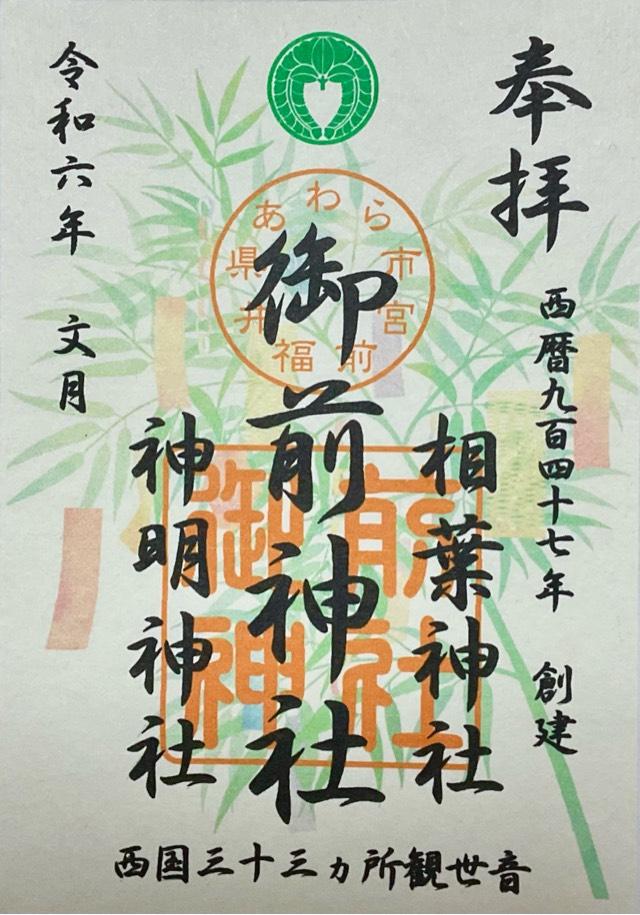 奉拝
西暦九百四十七年 創建
相葉神社
御前神社
神明神社
令和六年 文月
福井県あわら市宮前
御前
神社
西国三十三ヵ所観世音